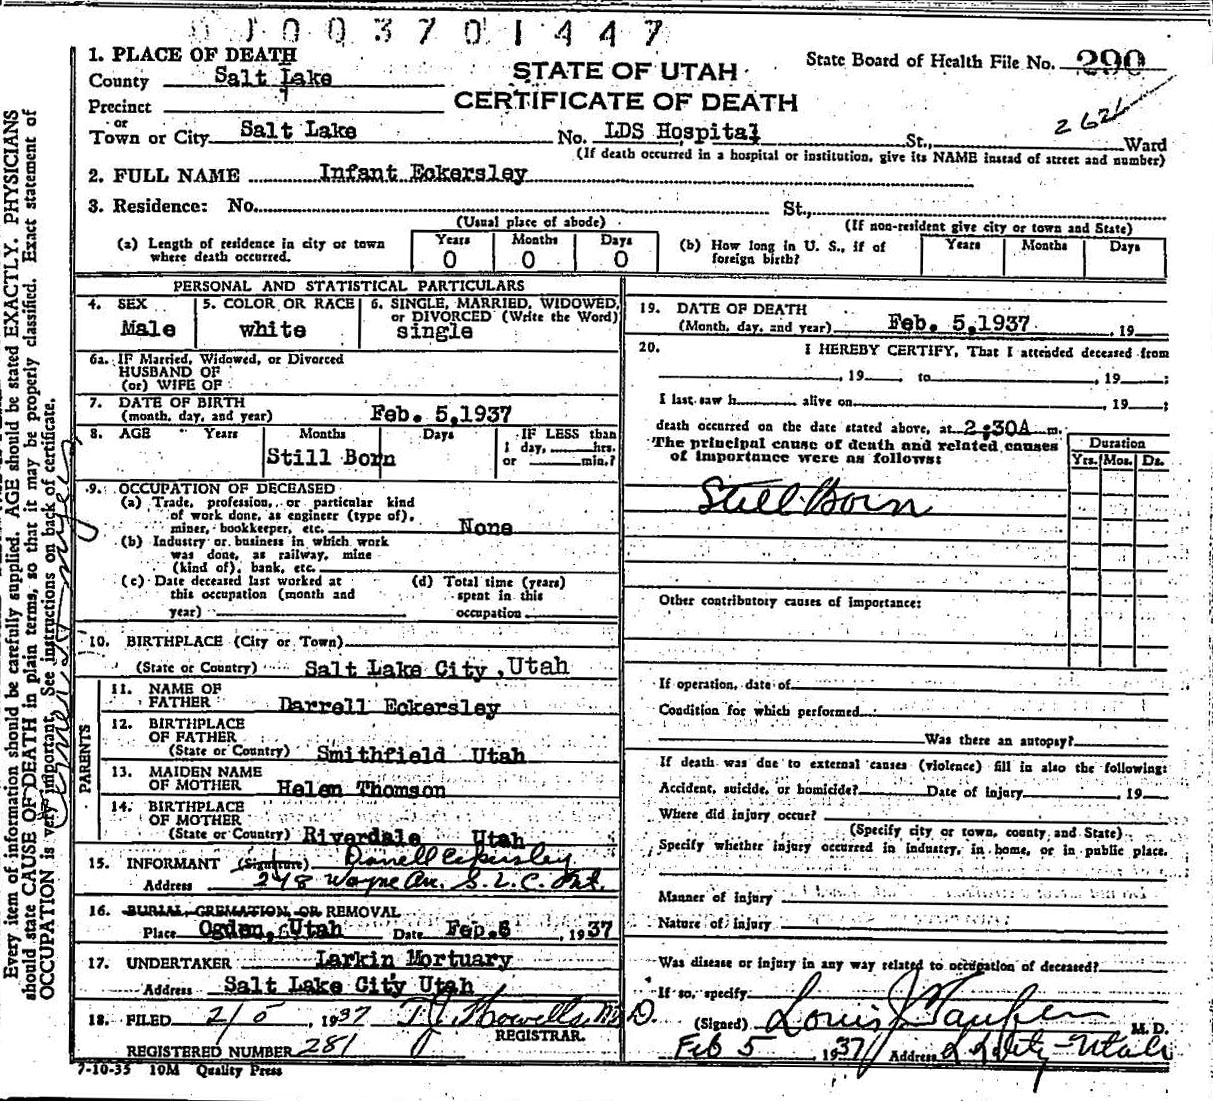 01003701447
1. PLACE OF DEATH
State Board of Health File No. 290
County Salt Lake
STATE OF UTAH
CERTIFICATE OF DEATH
Precinct
or
Town or City Salt Lake No. LDS Hospital St., Ward
(If death occurred in a hospital or institution, give its NAME instead of street and number)
2. FULL NAME Infant Eckersley
3. Residence: No. St.,
(Usual place of abode) (If non-resident give city or town and State)
(a) Length of residence in city or town where death occurred. Years 0 Months 0 Days 0
(b) How long in U. S., if of foreign birth? Years Months Days
PERSONAL AND STATISTICAL PARTICULARS
4. SEX Male
5. COLOR OR RACE white
6. SINGLE, MARRIED, WIDOWED, or DIVORCED (Write the Word) single
6a. IF Married, Widowed, or Divorced
HUSBAND OF
(or) WIFE OF
7. DATE OF BIRTH
(month, day, and year) Feb. 5,1937
8. AGE Years Months Days IF LESS than
1 day, hrs.
or min.?
Still Born
9. OCCUPATION OF DECEASED
(a) Trade, profession, or particular kind
of work done, as engineer (type of),
miner, bookkeeper, etc. None
(b) Industry or business in which work
was done, as railway, mine
(kind of), bank, etc.
(c) Date deceased last worked at
this occupation (month and
year)
(d) Total time (years)
spent in this
occupation
10. BIRTHPLACE (City or Town)
(State or Country) Salt Lake City, Utah
PARENTS
11. NAME OF
FATHER Darrell Eckersley
12. BIRTHPLACE
OF FATHER
(State or Country) Smithfield Utah
13. MAIDEN NAME
OF MOTHER Helen Thomson
14. BIRTHPLACE
OF MOTHER
(State or Country) Riverdale Utah
15. INFORMANT (Signature) Darrell Eckersley
Address 248 Wayne Av. S.L.C. Ut.
16. BURIAL, CREMATION, OR REMOVAL
Place Ogden, Utah Date Feb.6, 1937
17. UNDERTAKER Larkin Mortuary
Address Salt Lake City Utah
18. FILED 2/5, 1937 T J Howells, M.D.
REGISTRAR.
REGISTERED NUMBER 281
7-10-35 10M Quality Press
19. DATE OF DEATH
(Month, day, and year) Feb. 5,1937, 19
20. I HEREBY CERTIFY, That I attended deceased from
, 19 to , 19 ;
I last saw h alive on , 19 ;
death occurred on the date stated above, at 2:30A m.
The principal cause of death and related causes
of importance were as follows:
Duration
Yrs. Mos. Ds.
Still Born
Other contributory causes of importance:
If operation, date of
Condition for which performed
Was there an autopsy?
If death was due to external causes (violence) fill in also the following:
Accident, suicide, or homicide? Date of injury 19
Where did injury occur?
(Specify city or town, county and State)
Specify whether injury occurred in industry, in home, or in public place.
Manner of injury
Nature of injury
Was disease or injury in any way related to occupation of deceased?
If so, specify
(Signed) Louis J Taufer M. D.
Feb 5, 1937 Address
Every item of information should be carefully supplied. AGE should be stated EXACTLY. PHYSICIANS
should state CAUSE OF DEATH in plain terms, so that it may be properly classified. Exact statement of
OCCUPATION is very important. See instructions on back of certificate.